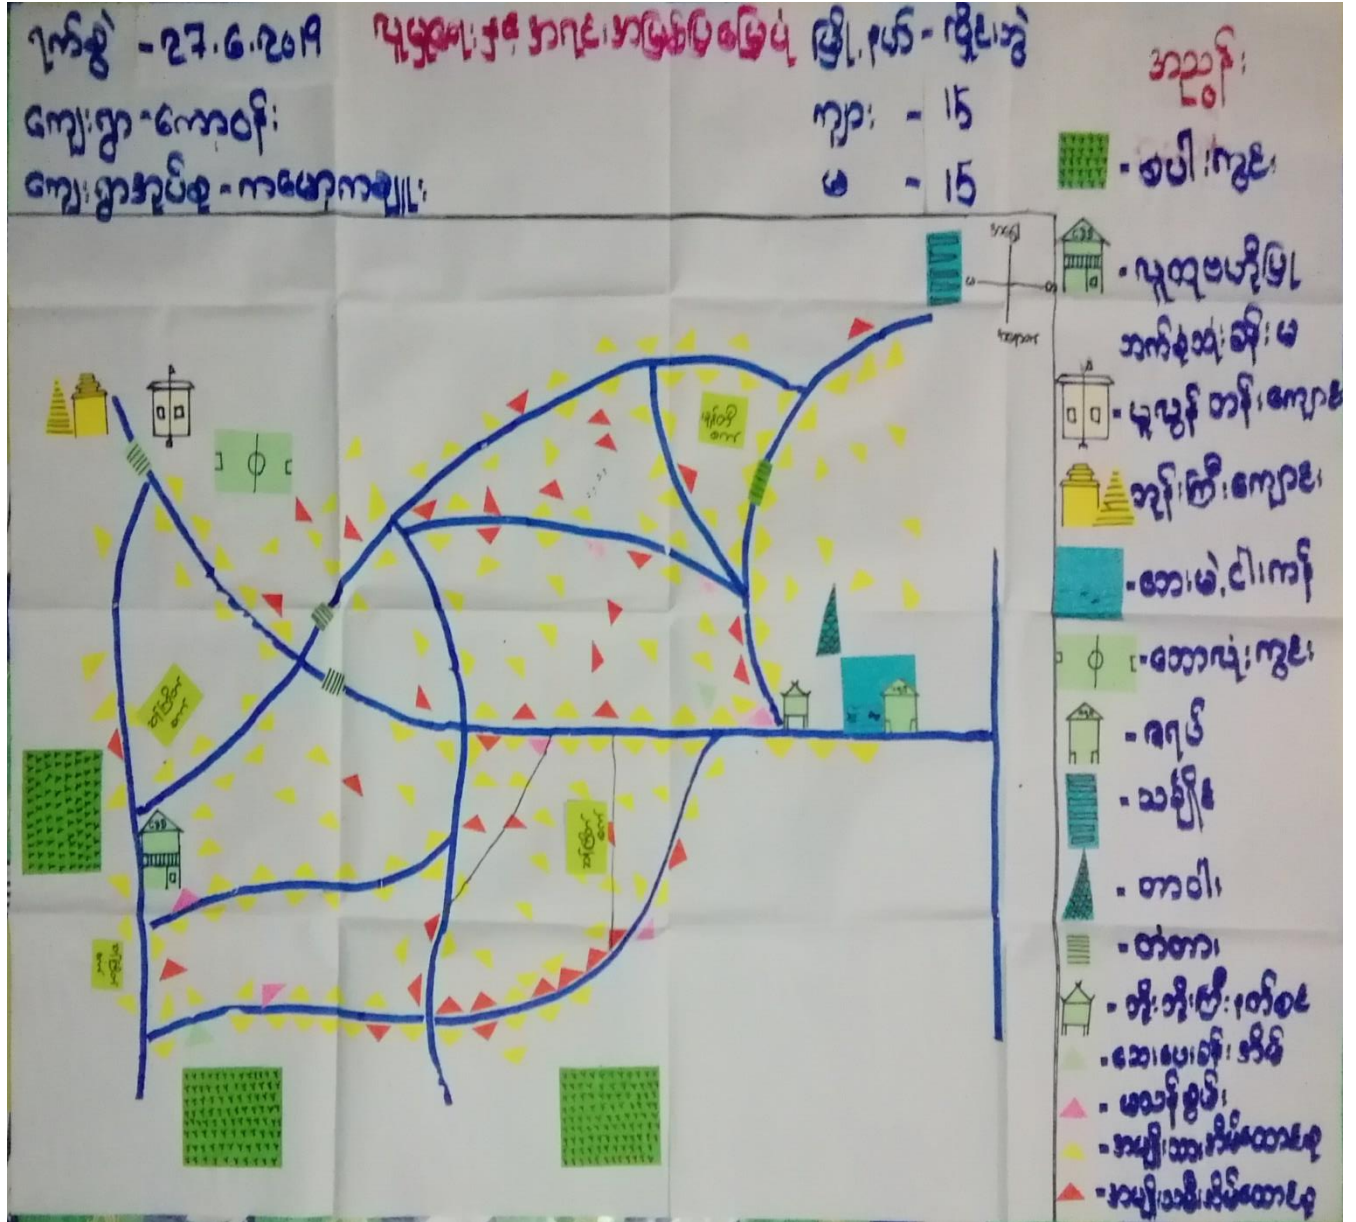 ရက်စွဲ - 27.6.2019
လူမှုရေးနှင့် အရင်းအမြစ်ပြမြေပုံ
မြို့နယ် - လှိုင်းဘွဲ
ကျေးရွာ - ကော့ဝန်း
ကျား - 15
ကျေးရွာအုပ်စု - ကမော့ကချူး
မ - 15
အညွှန်း
= စပါးကွင်း
= လူထုဗဟိုပြု
ဘက်စုံသုံးခန်းမ
= မူလွန်တန်းကျောင်း
= ဘုန်းကြီးကျောင်း
= ဘေးမဲ့ငါးကန်
= ဘောလုံးကွင်း
= ဇရပ်
= သင်္ချိုင်း
= တာဝါ
= တံတား
= ဘိုးဘိုးကြီးနတ်စင်
= ဆေးပေးခန်းအိမ်
= မသန်စွမ်း
= အမျိုးသားအိမ်ထောင်စု
= အမျိုးသမီးအိမ်ထောင်စု